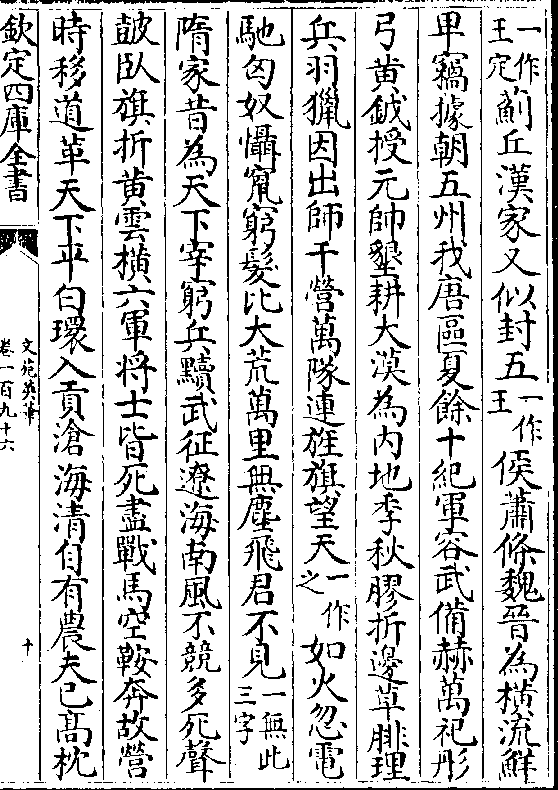 一作王定薊丘漢家又似封五一作王侯蕭條魏晉為橫流鮮
卑竊據朝五州我唐區夏餘十紀軍容武備赫萬祀彤
弓黃鉞授元帥墾耕大漠為內地季秋膠折邊草腓理
兵羽獵因出師千營萬隊連旌旗望天一作之如火忽電
馳匈奴懾竄窮髮北大荒萬里無塵飛君不見一無此三字
隋家昔為天下宰窮兵黷武征遼海南風不競多死聲
鼓臥旗折黃雲橫六軍將士皆死盡戰馬空鞍奔故營
時移道革天下平白環入貢滄海清自有農夫已高枕
欽定四庫全書
文苑英華
卷一百九十六
十